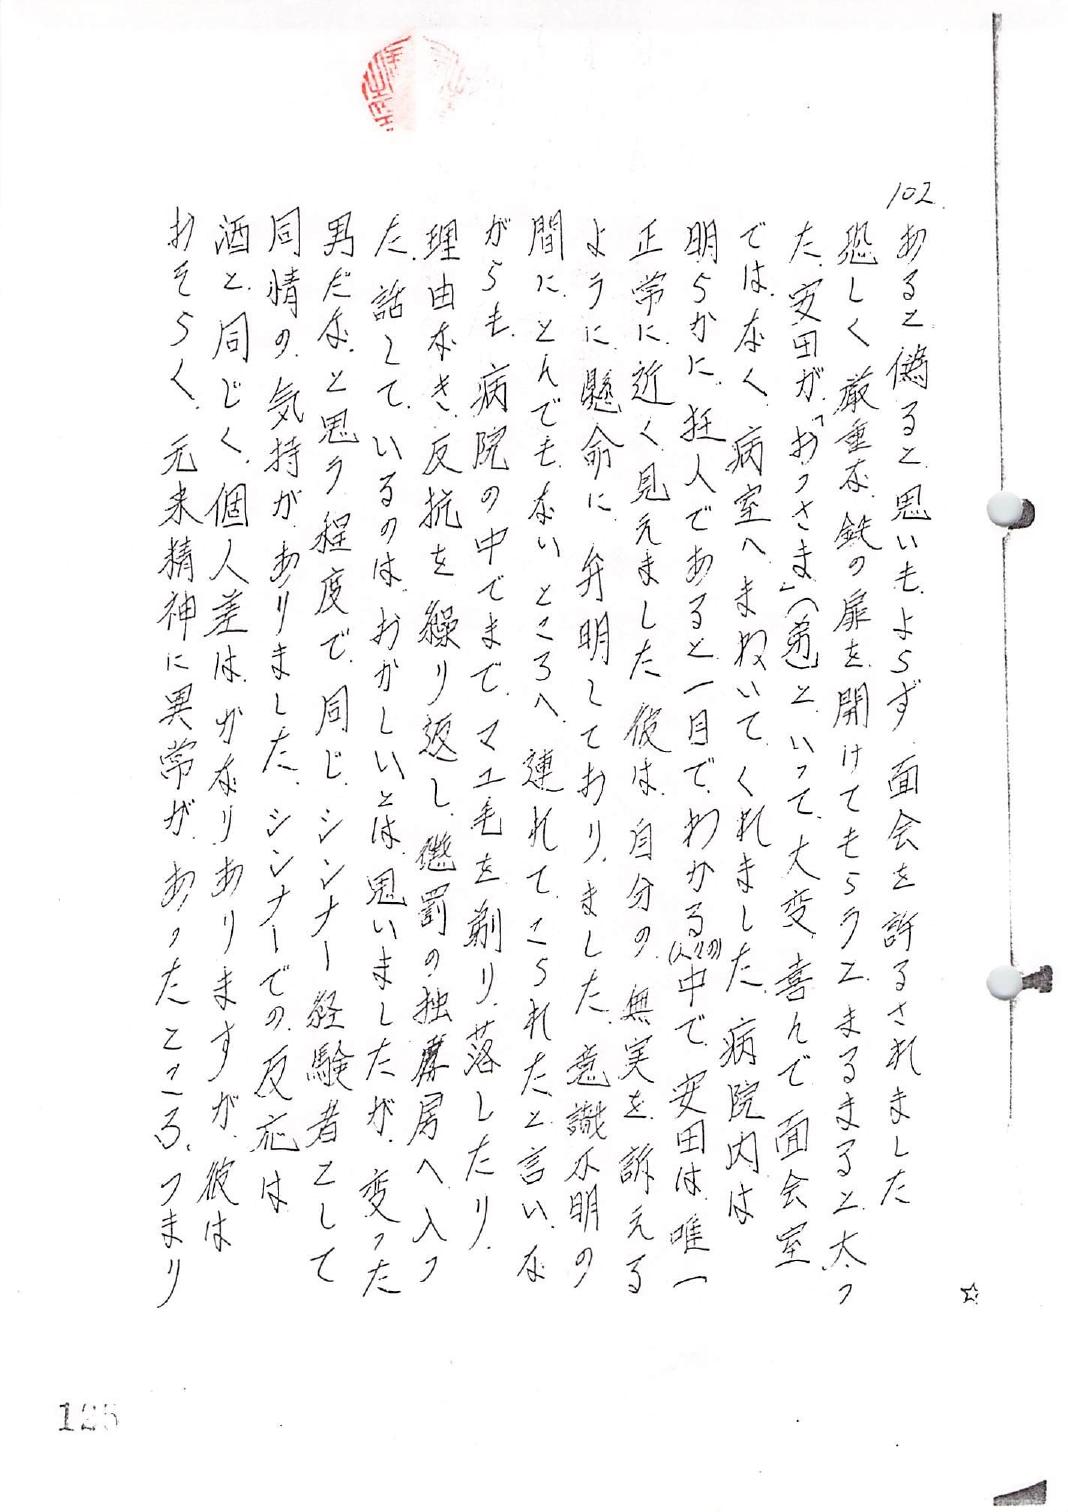 102.
あると偽ると思いもよらず面会を許るされました
恐しく厳重な鉄の扉を開けてもらうとまるまると太っ
た安田が「おっさま」(弟)といって大変喜んで面会室
ではなく病室へまねいてくれました病院内は
明らかに狂人であると一目でわかる(人々の)中で安田は唯一
正常に近く見えました彼は自分の無実を訴える
ように懸命に弁明しておりました意識不明の
間にとんでもないところへ連れてこられたと言いな
がらも病院の中でまでマユ毛を剃り落したり
理由なき反抗を繰り返し懲罰の独房へ入っ
た話しているのはおかしいとは思いましたが変った
男だなと思う程度で同じシンナー経験者として
同情の気持がありましたシンナーでの反応は
酒と同じく個人差はかなりありますが彼は
おそらく元来精神に異常があったところつまり
☆
125